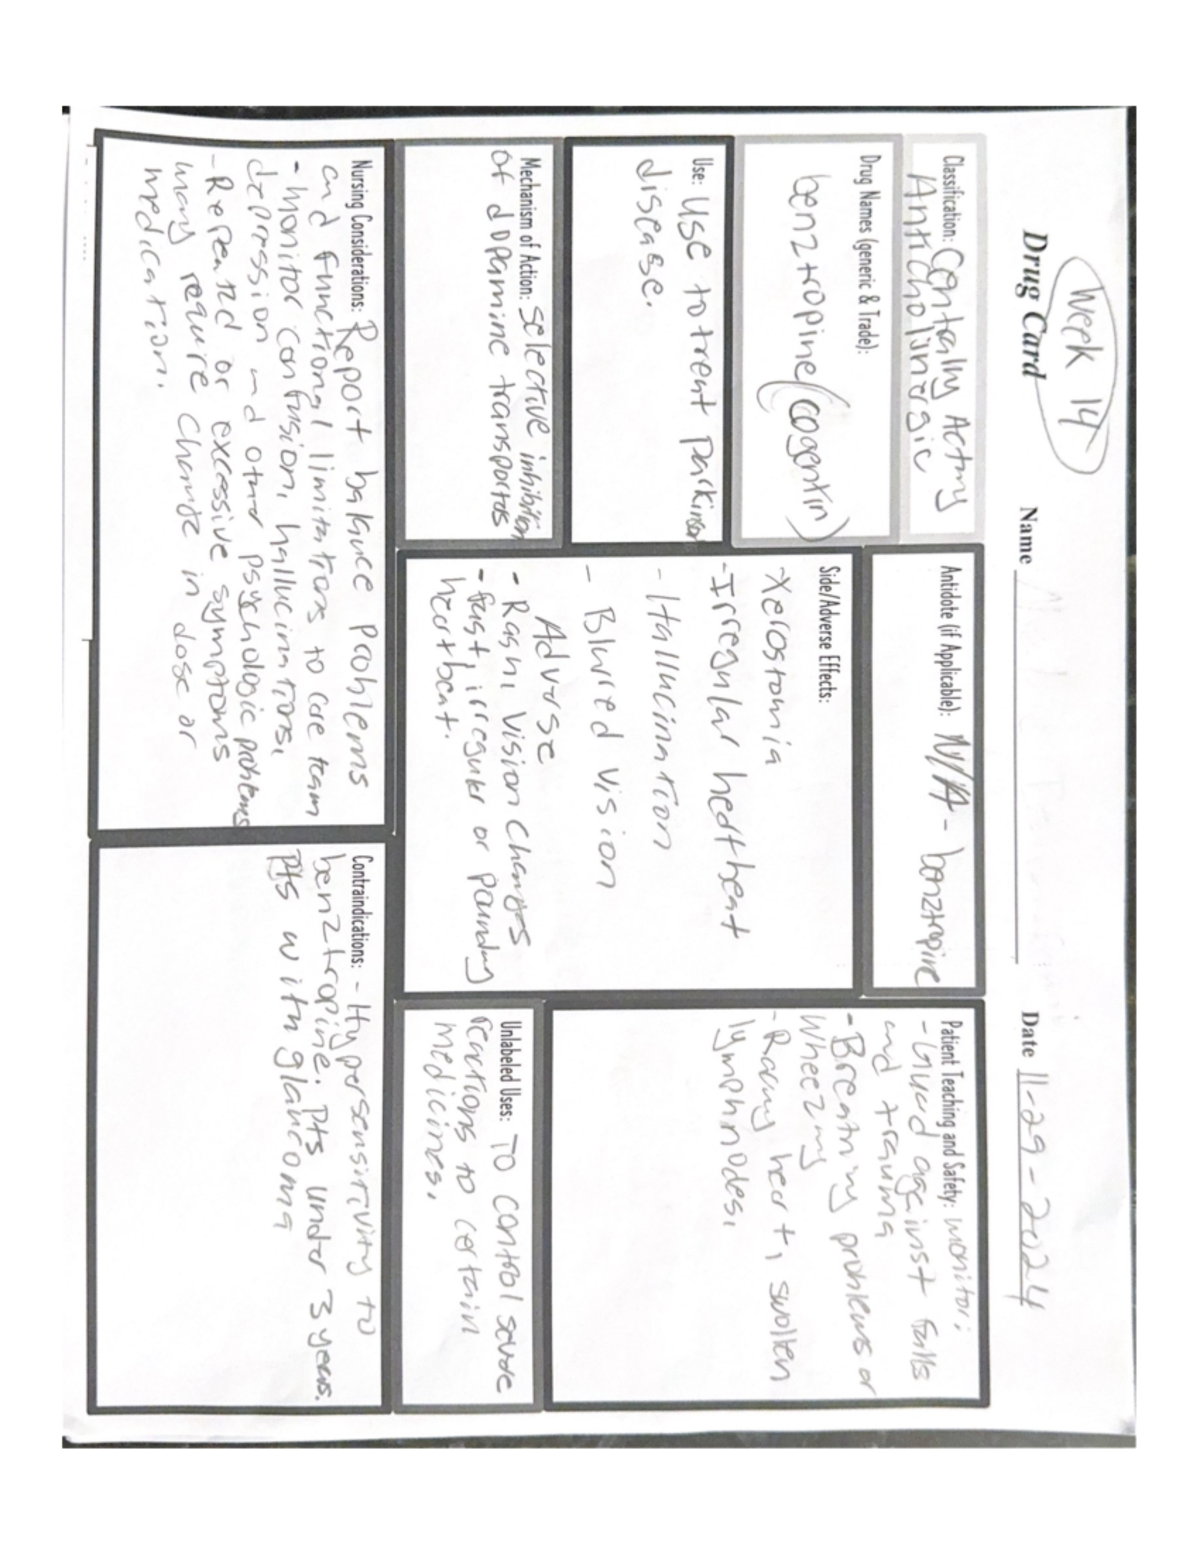 Week 14
Drug Card Name Date 11-29-2024
Classification: Centally Acting
Anticholinergic
Drug Names (generic & Trade):
benztropine (cogentin)
Use: Use to treat parkinson
disease.
Mechanism of Action: Selective inhibition
of dopamine transportos
Nursing Considerations: Report balance problems
and functional limitations to care team
- monitor confusion, hallucinations,
depression and other psychologic problems
- Repeated or excessive symptoms
may require change in dose or
medication.
Antidote (if Applicable): N/A - benztropine
Side/Adverse Effects:
-Xerostomia
-Irregular hedtbeat
- Hallucination
- Blurred vision
-
Adverse
- Rash, Vision Changes
- fast, irregular or pounding
heartbeat.
Patient Teaching and Safety: monitor:
- Guard against falls
and trauma
- Breathing problems or
wheezing
- Racing heart, swollen
lymphnodes.
Unlabeled Uses: To control severe
reactions to certain
medicines.
Contraindications: - Hypersensitivity to
benztropine. Pts under 3 years.
Pts with glaucoma